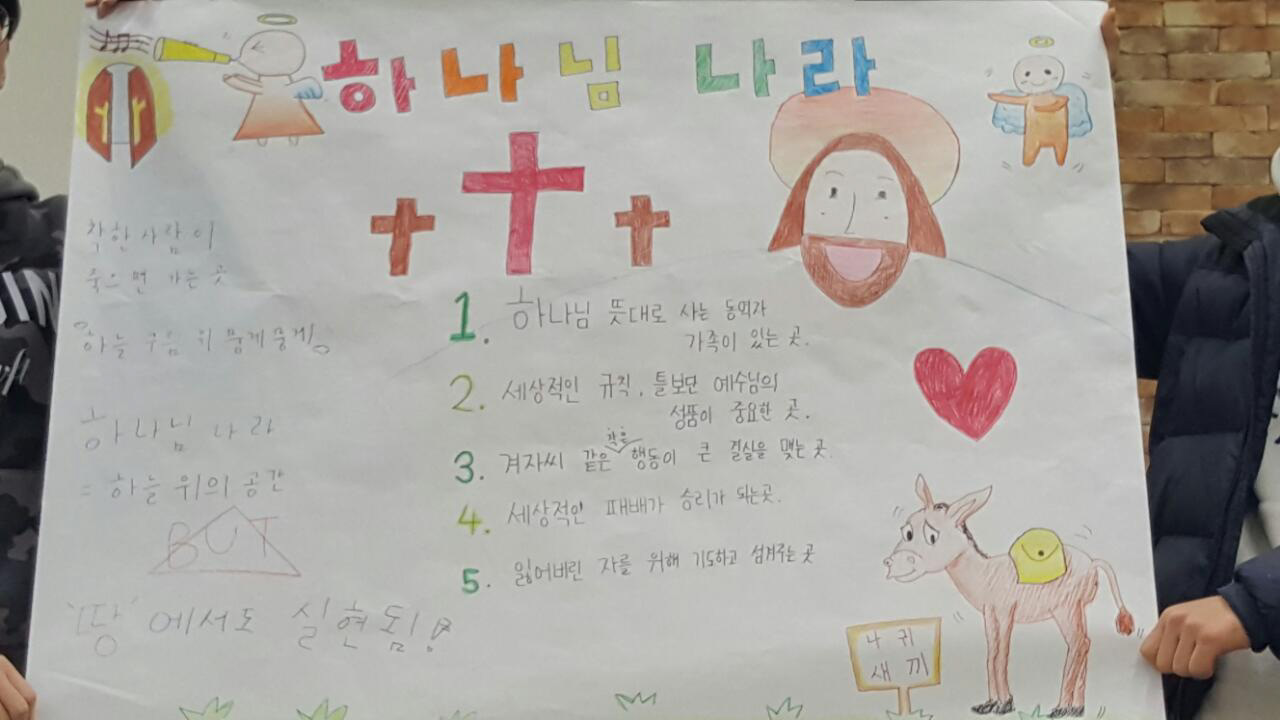 하나님 나라
착한 사람이
죽으면 가는 곳
하늘 구름 위 뭉게뭉게!
하나님 나라
= 하늘 위의 공간
BUT
'땅'에서도 실현됨!
1. 하나님 뜻대로 사는 동역자
가족이 있는 곳.
2. 세상적인 규칙, 틀보단 예수님의
성품이 중요한 곳.
작은
3. 겨자씨 같은 행동이 큰 결실을 맺는 곳.
4. 세상적인 패배가 승리가 되는곳.
5. 잃어버린 자를 위해 기도하고 섬겨주는 곳
나귀
새끼